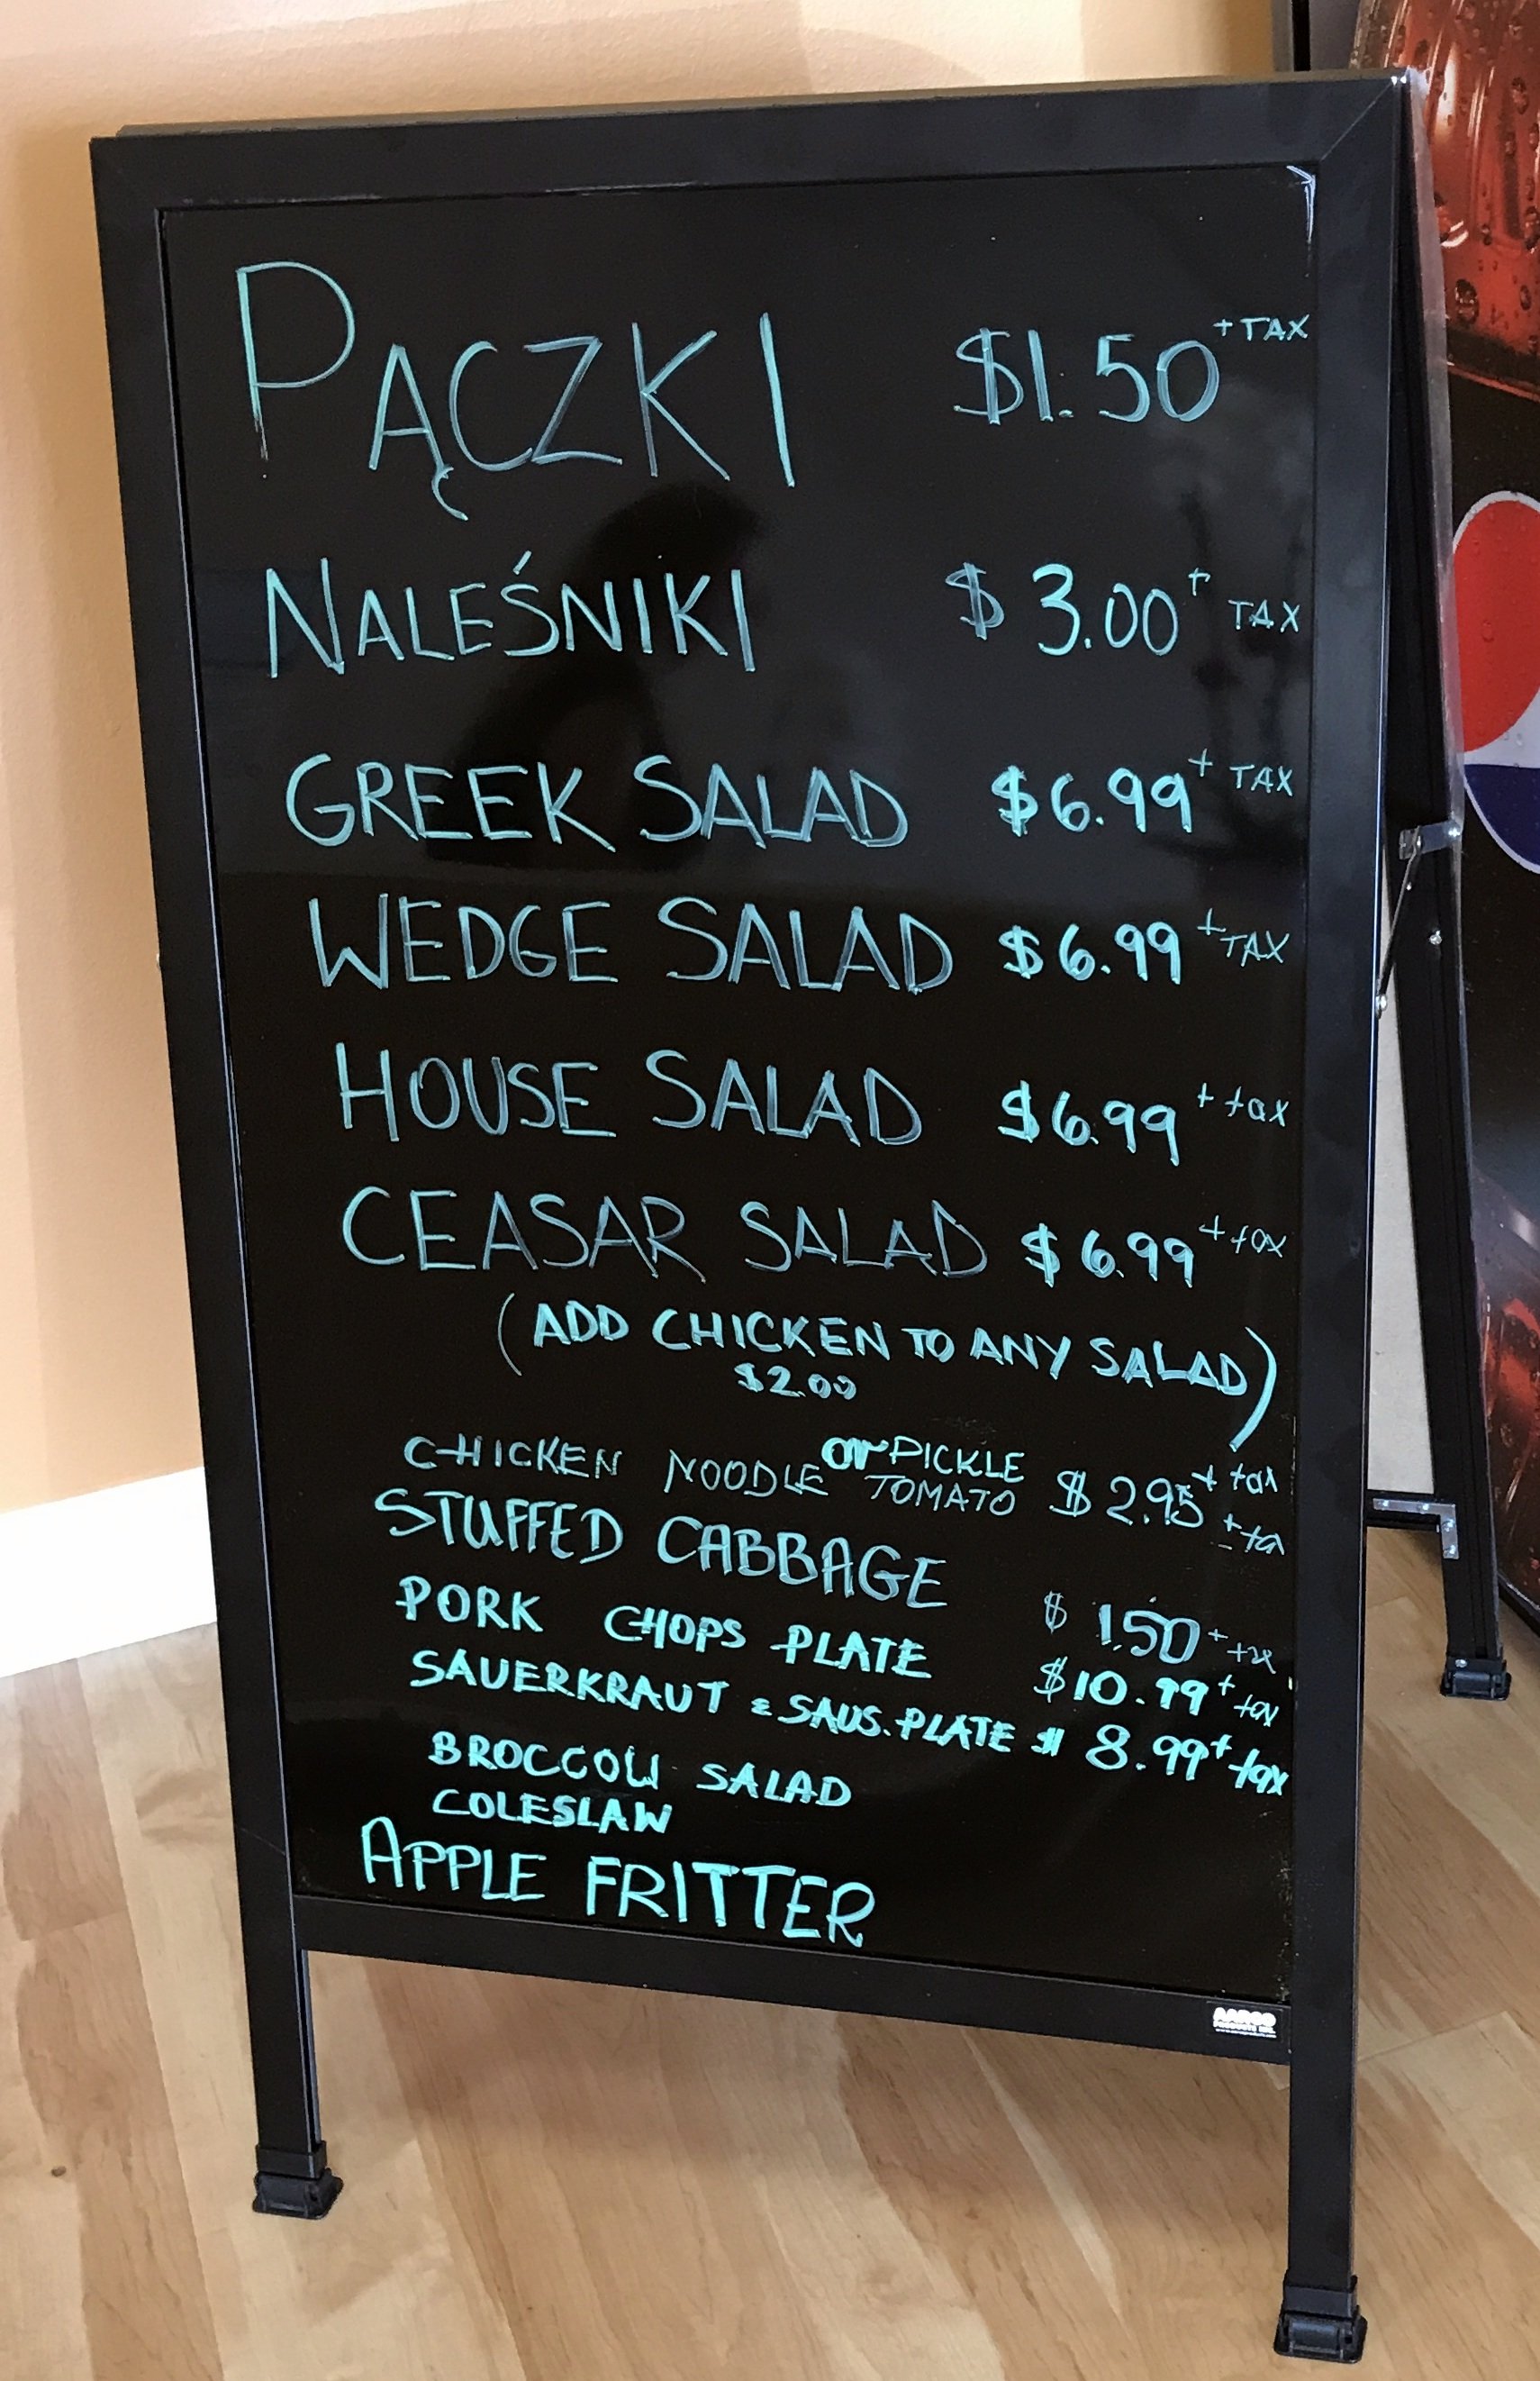 PĄCZKI $1.50 + TAX
NALEŚNIKI $ 3.00 + TAX
GREEK SALAD $6.99 + TAX
WEDGE SALAD $6.99 + TAX
HOUSE SALAD $6.99 + tax
CEASAR SALAD $6.99 + tax
(ADD CHICKEN TO ANY SALAD)
$2.00
CHICKEN NOODLE or PICKLE $2.95 + tax
TOMATO
STUFFED CABBAGE $ 1.50 + tax
PORK CHOPS PLATE $10.99 + tax
SAUERKRAUT & SAUS. PLATE $ 8.99 + tax
BROCCOLI SALAD
COLESLAW
APPLE FRITTER
AARCO